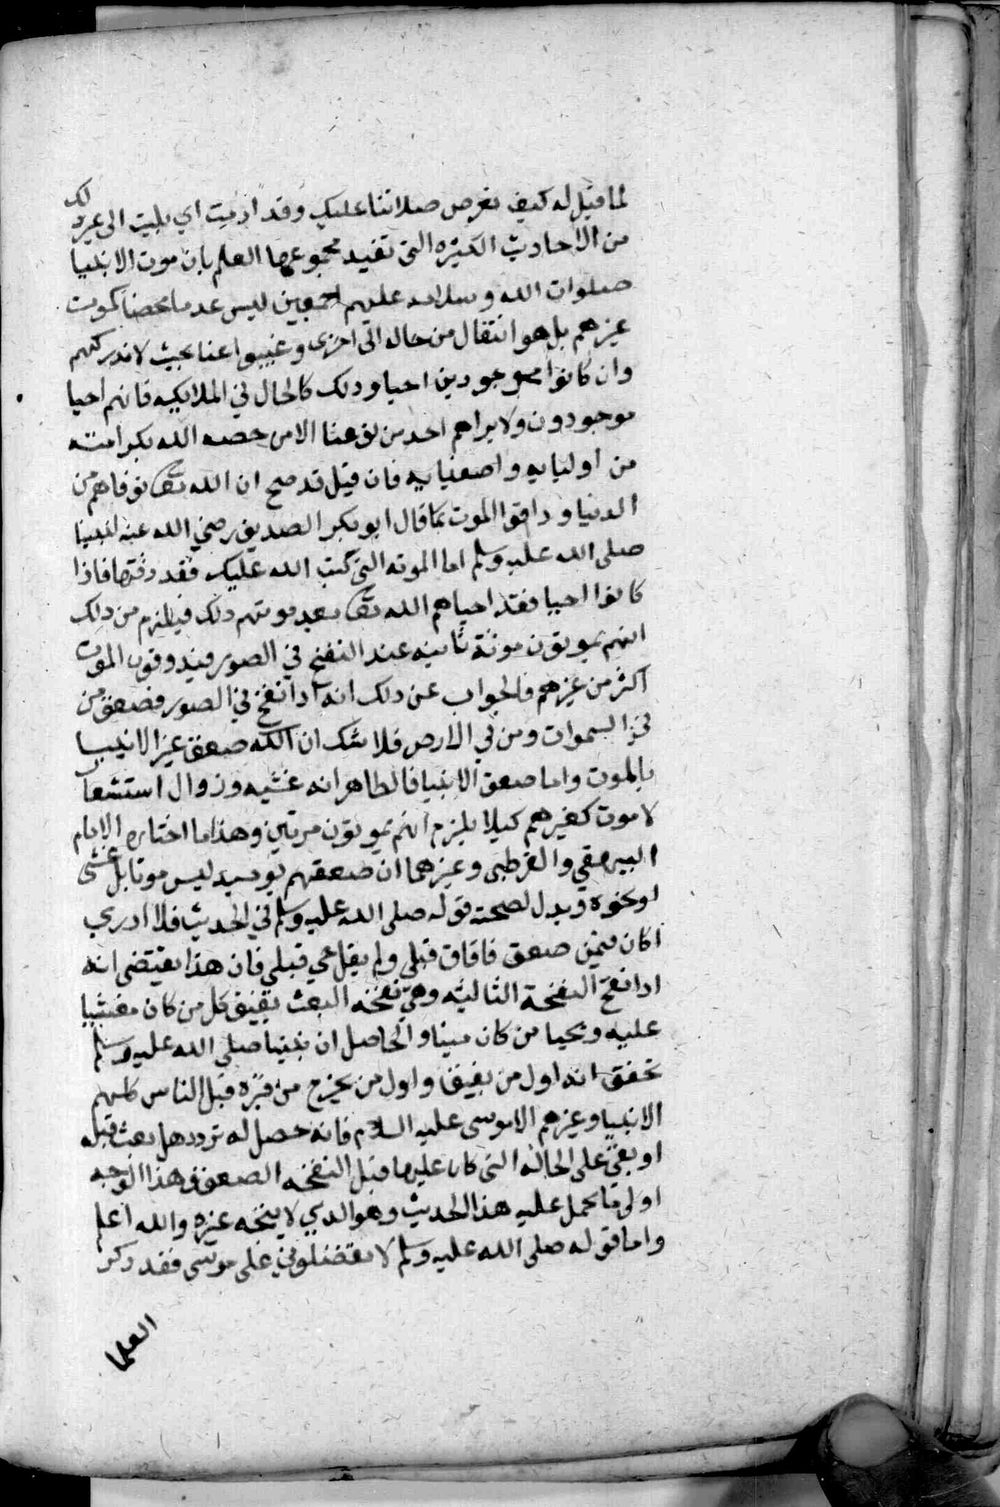 لما قيل له كيف تعرض صلاتنا عليك وقد ارمت اي بليت الى غير ذلك
من الاحاديث الكثيره التى تفيد مجموعها العلم بان موت الانبيا
صلوات الله وسلامه عليهم اجمعين ليس عدما محضا كموت
غيرهم بل هو انتقال من حاله الى اخرى وغيبوا عنا بحيث لا ندركهم
وان كانوا موجودين احيا وذلك كالحال في الملايكه فانهم احيا
موجودون ولا يراهم احد من نوعنا الا من خصه الله بكرامته
من اوليايه واصفيايه فان قيل قد صح ان الله تعالى توفاهم من
الدنيا وذاقوا الموت كما قال ابو بكر الصديق رضي الله عنه لنبينا
صلى الله عليه وسلم اما الموته التى كتب الله عليك فقد ذقتها فاذا
كانوا احيا فقد احياهم الله تعالى بعد موتهم ذلك فيلزم من ذلك
انهم يموتون موتة ثانيه عند النفخ في الصور فيذوقون الموت
اكثر من غيرهم فالجواب عن ذلك انه اذا نفخ في الصور فصعق من
في السموات ومن في الارض فلا شك ان الله صعق غير الانبيا
بالموت واما صعق الانبيا فالظاهر انه غشيه وزوال استشعار
لا موت كغيرهم كيلا يلزم انهم يموتون مرتين وهذا ما اختاره الامام
البيهقي والقرطبى وغيرهما ان صعقهم يوميذ ليس موتا بل غشى
او نحوه ويدل لصحته قوله صلى الله عليه وسلم في الحديث فلا ادري
اكان فيمن صعق فافاق قبلي ولم يقل حي قبلي فان هذا يقتضى انه
اذا نفخ النفخة الثانيه وهي نفخه البعث يفيق كل من كان مغشيا
عليه ويحيا من كان ميتا والحاصل ان نبينا صلى الله عليه وسلم
تحقق انه اول من يفيق واول من يخرج من قبره قبل الناس كلهم
الانبيا وغيرهم الا موسى عليه السلام فانه حصل له تردد هل بعث قبله
او بقى على الحاله التى كان عليها قبل النفخه الصعق فهذا الوجه
اولى ما يحمل عليه هذا الحديث وهو الذي لا يتجه غيره والله اعلم
واما قوله صلى الله عليه وسلم لا تفضلوني على موسى فقد ذكر
العلما